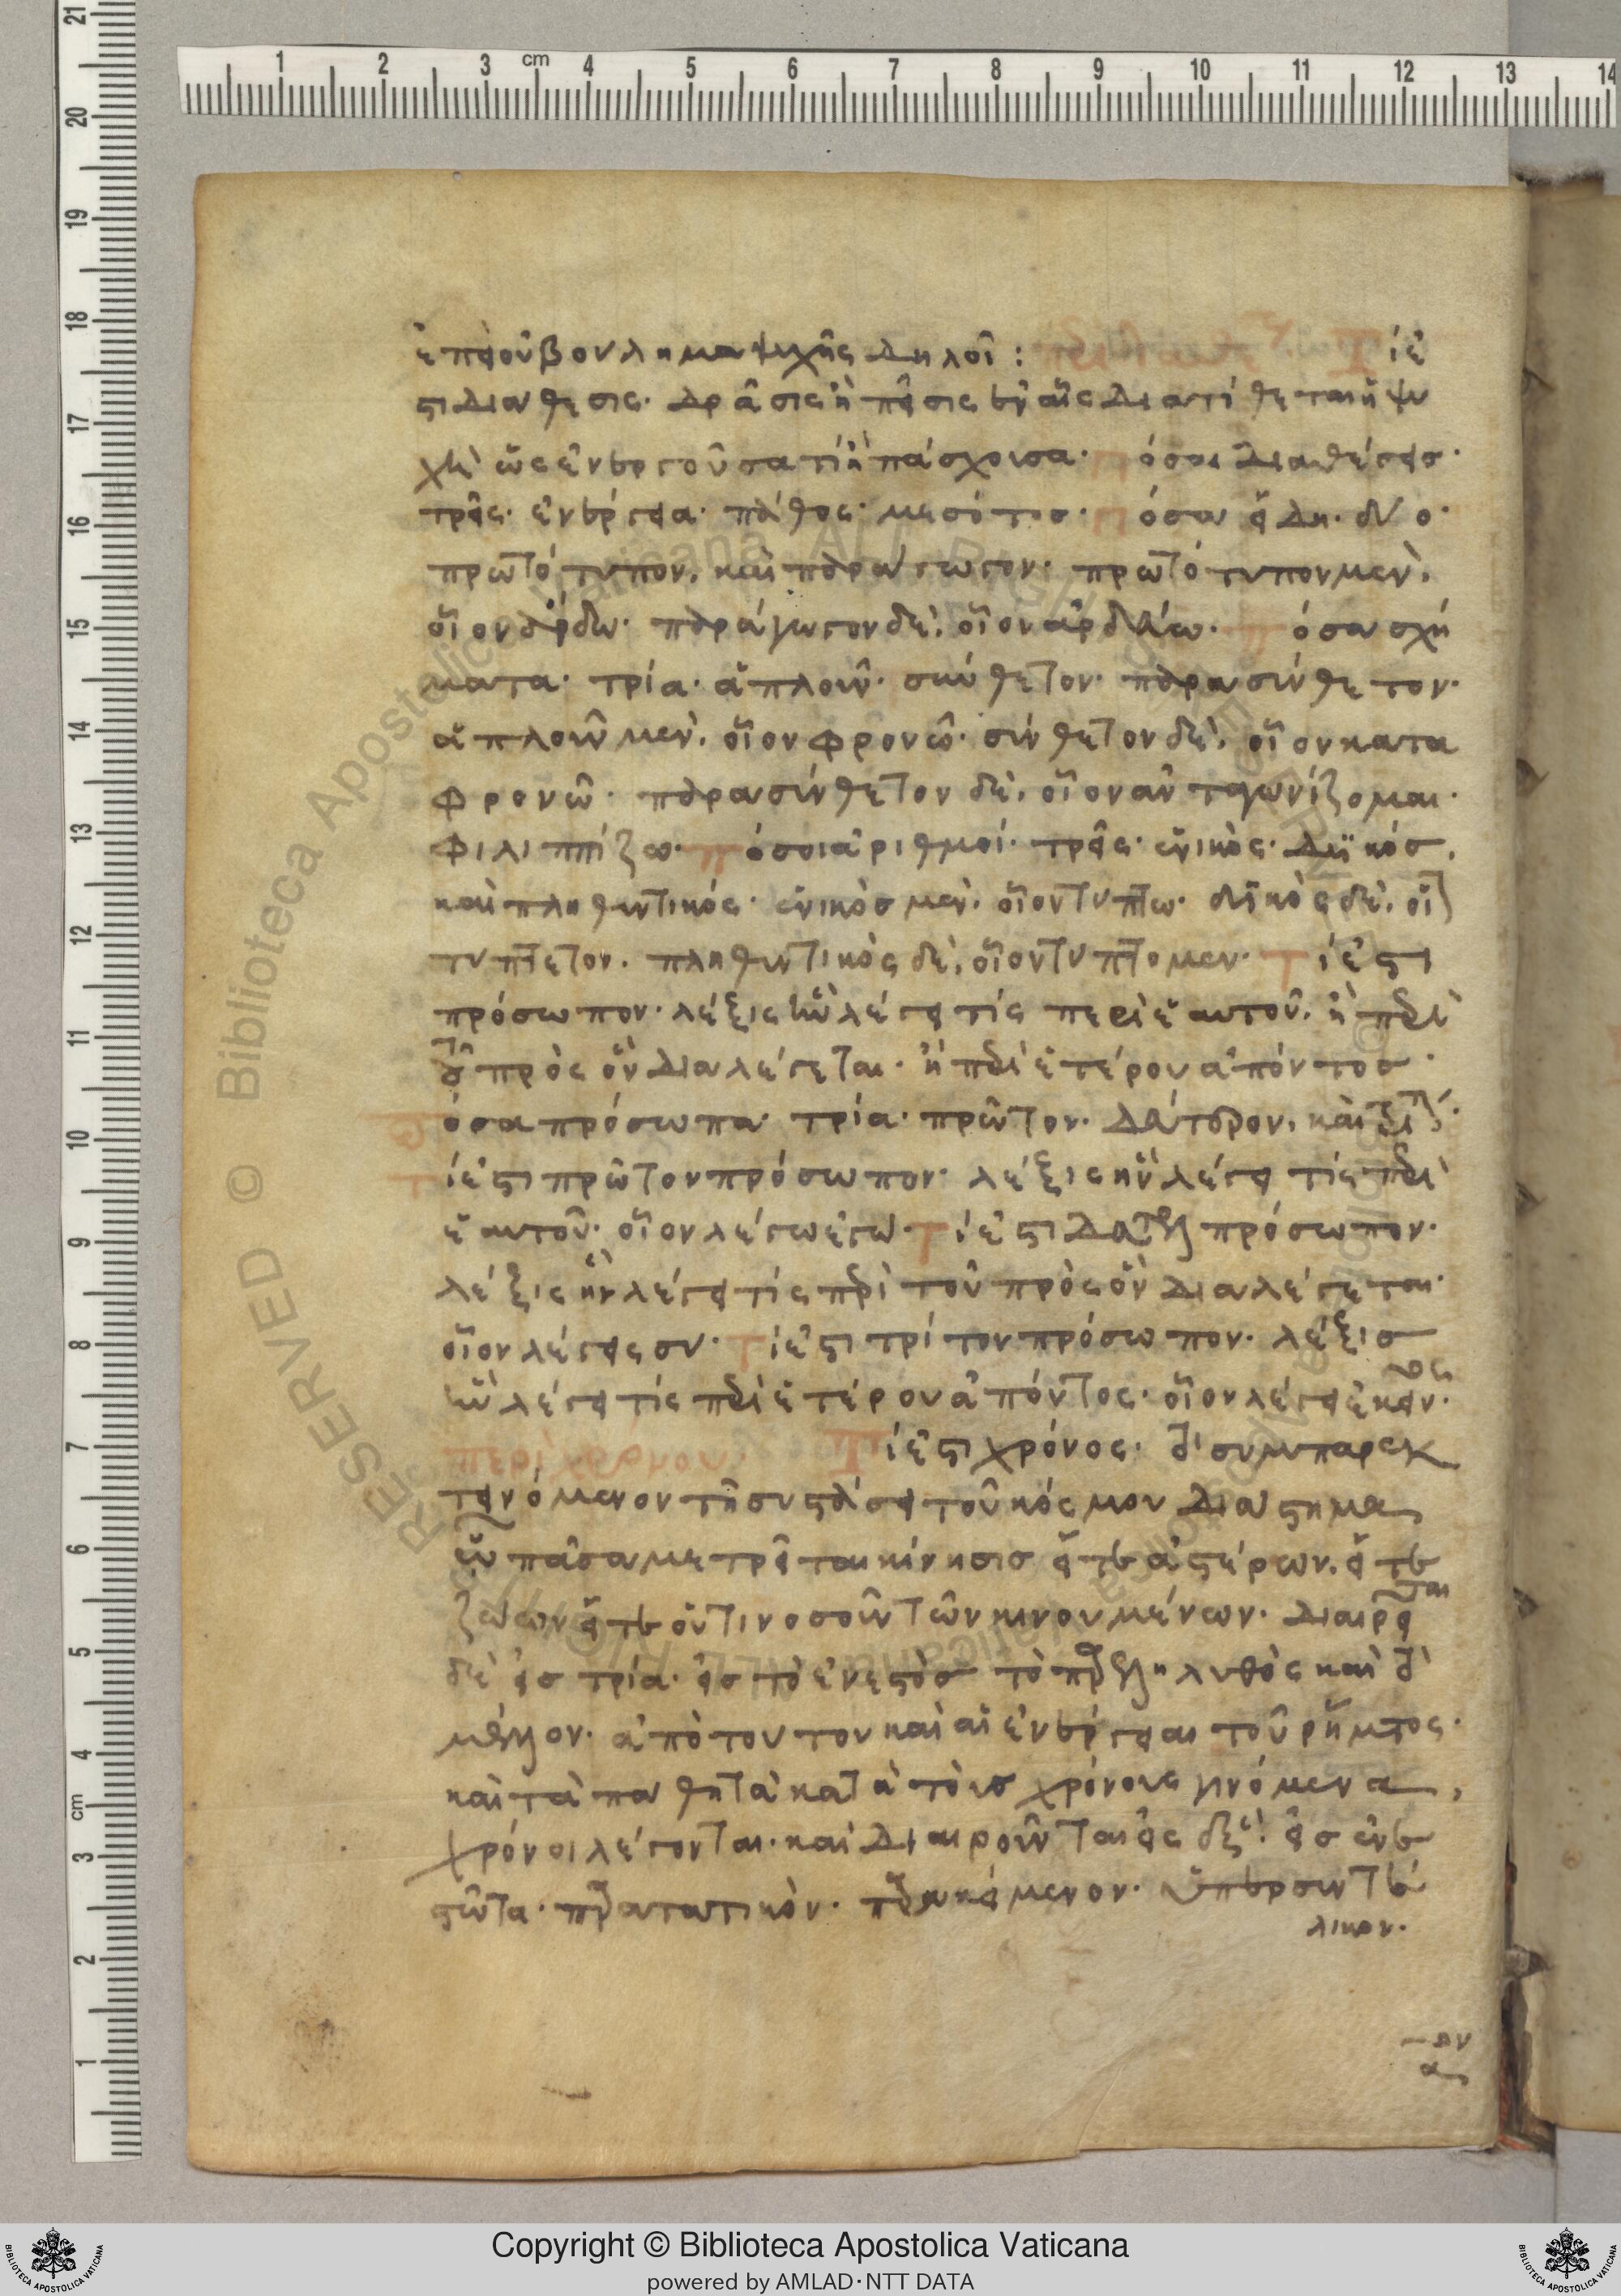 ἐπεὶ οὐ βούλημα ψυχῆς δηλοῖ : Τί ἐ
στι διάθεσις· δρᾶσις ἢ πεῖσις ἐν αἷς διατίθεται ἡ ψυ
χὴ ὡς ἐνεργοῦσα τί ἢ πάσχουσα· πόσαι διαθέσεις·
τρεῖς· ἐνέργεια· πάθος· μεσότης· πόσα εἴδη· δύο·
πρωτότυπον, καὶ παράγωγον· πρωτότυπον μὲν,
οἷον ἄρδω· παράγωγον δὲ, οἷον ἀρδεύω· πόσα σχή
ματα· τρία· ἁπλοῦν· σύνθετον· παρασύνθετον·
ἁπλοῦν μὲν, οἷον φρονῶ· σύνθετον δὲ, οἷον κατα
φρονῶ· παρασύνθετον δὲ, οἷον ἀνταγωνίζομαι·
Φιλιππίζω· πόσοι ἀριθμοί· τρεῖς· ἑνικὸς· δυϊκός,
καὶ πληθυντικός· ἑνικὸς μὲν, οἷον τύπτω· δυϊκὸς δὲ, οἷον
τύπτετον· πληθυντικὸς δὲ, οἷον τύπτομεν· τί ἐστι
πρόσωπον· λέξις ἣν λέγει τίς περὶ ἑαυτοῦ, ἢ περὶ
τοῦ πρὸς ὃν διαλέγεται· ἢ περὶ ἑτέρου ἀπόντος·
πόσα πρόσωπα· τρία· πρῶτον· δεύτερον, καὶ τρίτον·
τί ἐστι πρῶτον πρόσωπον· λέξις ἣν λέγει τίς περὶ
ἑαυτοῦ· οἷον λέγω ἐγώ· τί ἐστι δεύτερον πρόσωπον·
λέξις ἣν λέγει τίς περὶ τοῦ πρὸς ὃν διαλέγεται·
οἷον λέγεις συ· τί ἐστι τρίτον πρόσωπον· λέξις
ἣν λέγει τίς περὶ ἑτέρου ἀπόντος· οἷον λέγει ἐκεῖνος·
περὶ χρόνου· Τί ἐστι χρόνος· τὸ συμπαρεκ
τεινόμενον τῇ συστάσει τοῦ κόσμου διάστημα
ἐν ᾧ πᾶσα μετρεῖται κίνησις εἴτε ἀστέρων, εἴτε
ζώων εἴτε οὗτινοσοῦν τῶν κινουμένων· διαιρεῖται
δὲ εἰς τρία· εἰς τὸ ἐνεστὸς τὸ παρεληλυθὸς καὶ τὸ
μέλλον· ἀπὸ τούτου καὶ αἱ ἐνέργειαι τοῦ ῥήματος·
καὶ τὰ παθητὰ κατὰ τοὺς χρόνους γινόμενα,
χρόνοι λέγονται· καὶ διαιροῦνται εἰς εἰς ἐνε
στῶτα· παρατατικὸν· παρακείμενον· ὑπερσυντε
λικον·